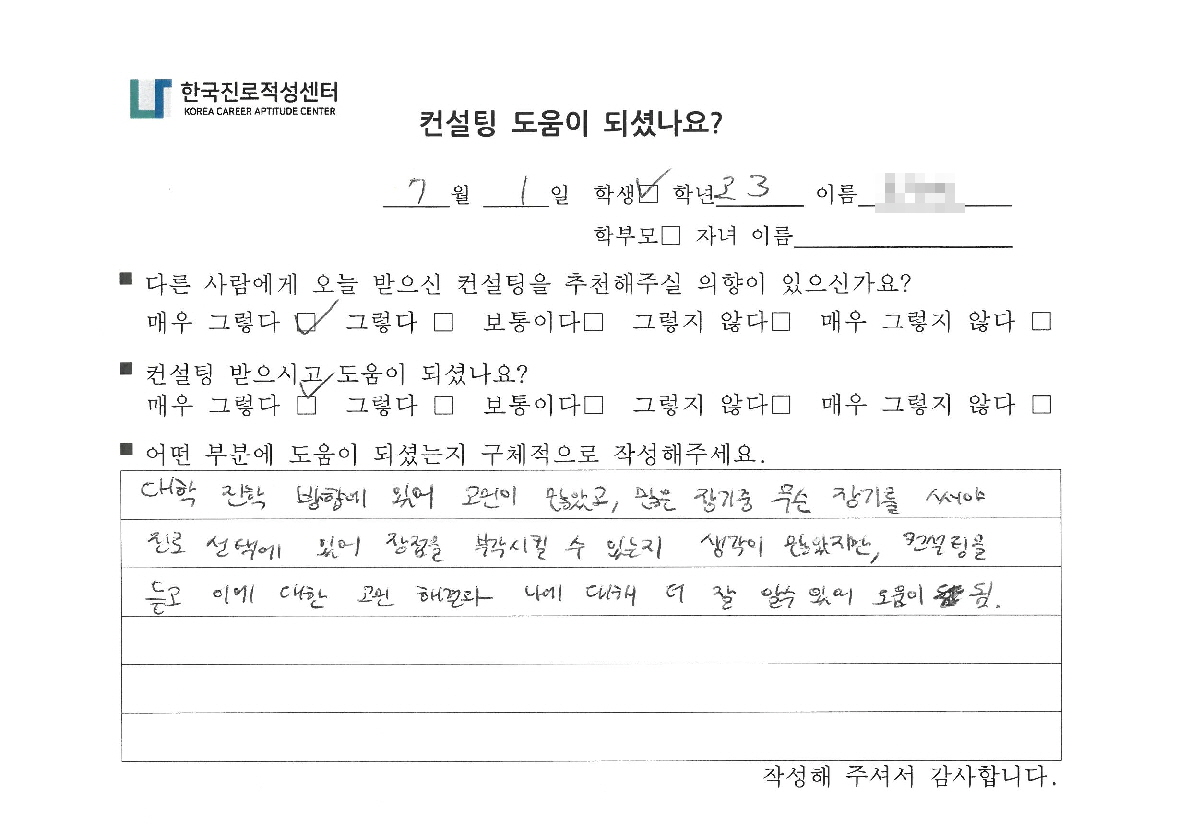 한국진로적성센터
KOREA CAREER APTITUDE CENTER
컨설팅 도움이 되셨나요?
7월 1일 학생☑ 학년 고3 이름
학부모□ 자녀 이름
■ 다른 사람에게 오늘 받으신 컨설팅을 추천해주실 의향이 있으신가요?
매우 그렇다 ☑ 그렇다 □ 보통이다□ 그렇지 않다□ 매우 그렇지 않다 □
■ 컨설팅 받으시고 도움이 되셨나요?
매우 그렇다 ☑ 그렇다 □ 보통이다□ 그렇지 않다□ 매우 그렇지 않다 □
■ 어떤 부분에 도움이 되셨는지 구체적으로 작성해주세요.
대학 진학 방향에 있어 고민이 많았고, 많은 장기중 무슨 장기를 써야
진로 선택에 있어 장점을 부각시킬 수 있는지 생각이 많았지만, 컨설팅을
듣고 이에 대한 고민 해결과 나에 대해 더 잘 알수 있어 도움이 됨.
작성해 주셔서 감사합니다.